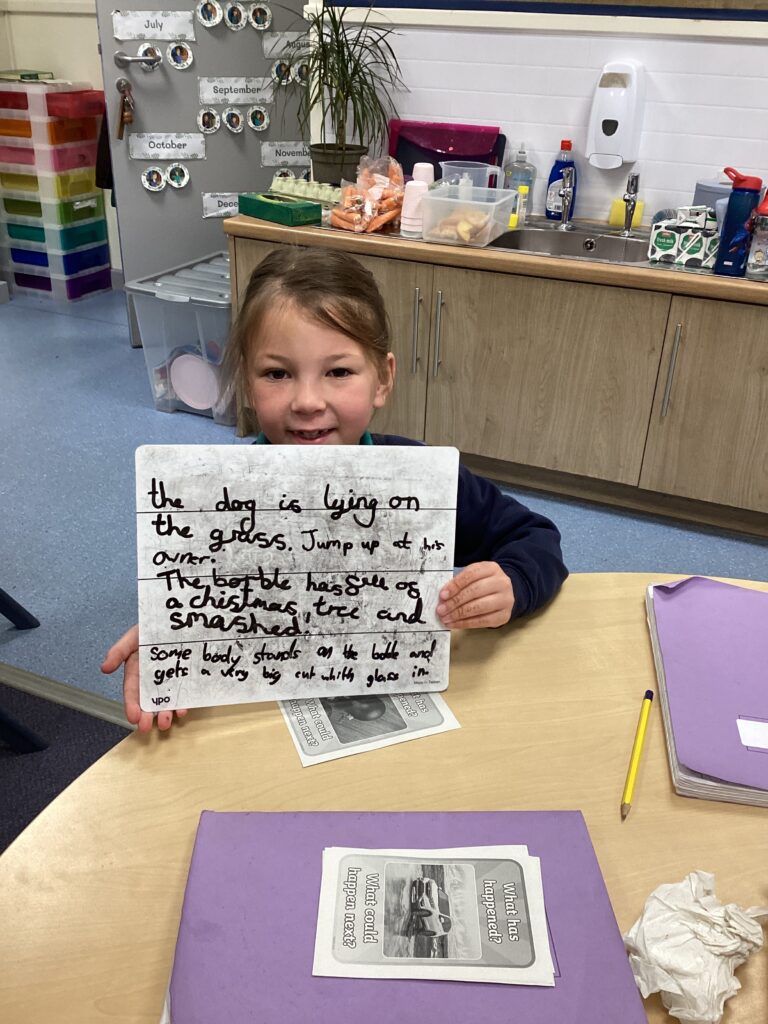 July
August
September
October
November
Dece
the dog is lying on
the grass. Jump up at his
owner.
The borble has fell of
a christmas tree and
smashed!
Some body stands on the boble and
gets a very big cut whith glass in
ypo
What has
happened?
What could
happen next?
What has
happened?
What could
happen next?